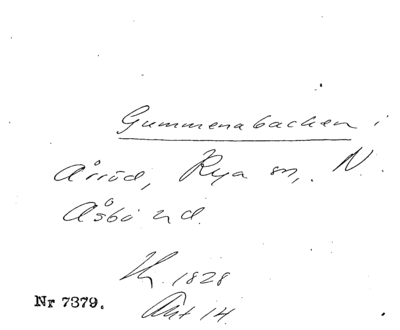 Gummenabacken i
Årröd, Rya sn, N.
Åsbo hd.
Hj. 1828
Nr 7379.
Akt 14